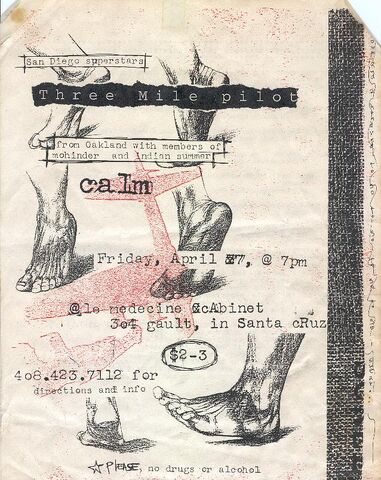 San Diego superstars
Three Mile pilot
from Oakland with members of
mohinder and indian summer
calm
Friday, April 7, @ 7pm
@le medecine cAbinet
3o4 gault, in Santa cRuz
$2-3
4o8.423.7112 for
directions and info
☆ PLEASE, no drugs or alcohol